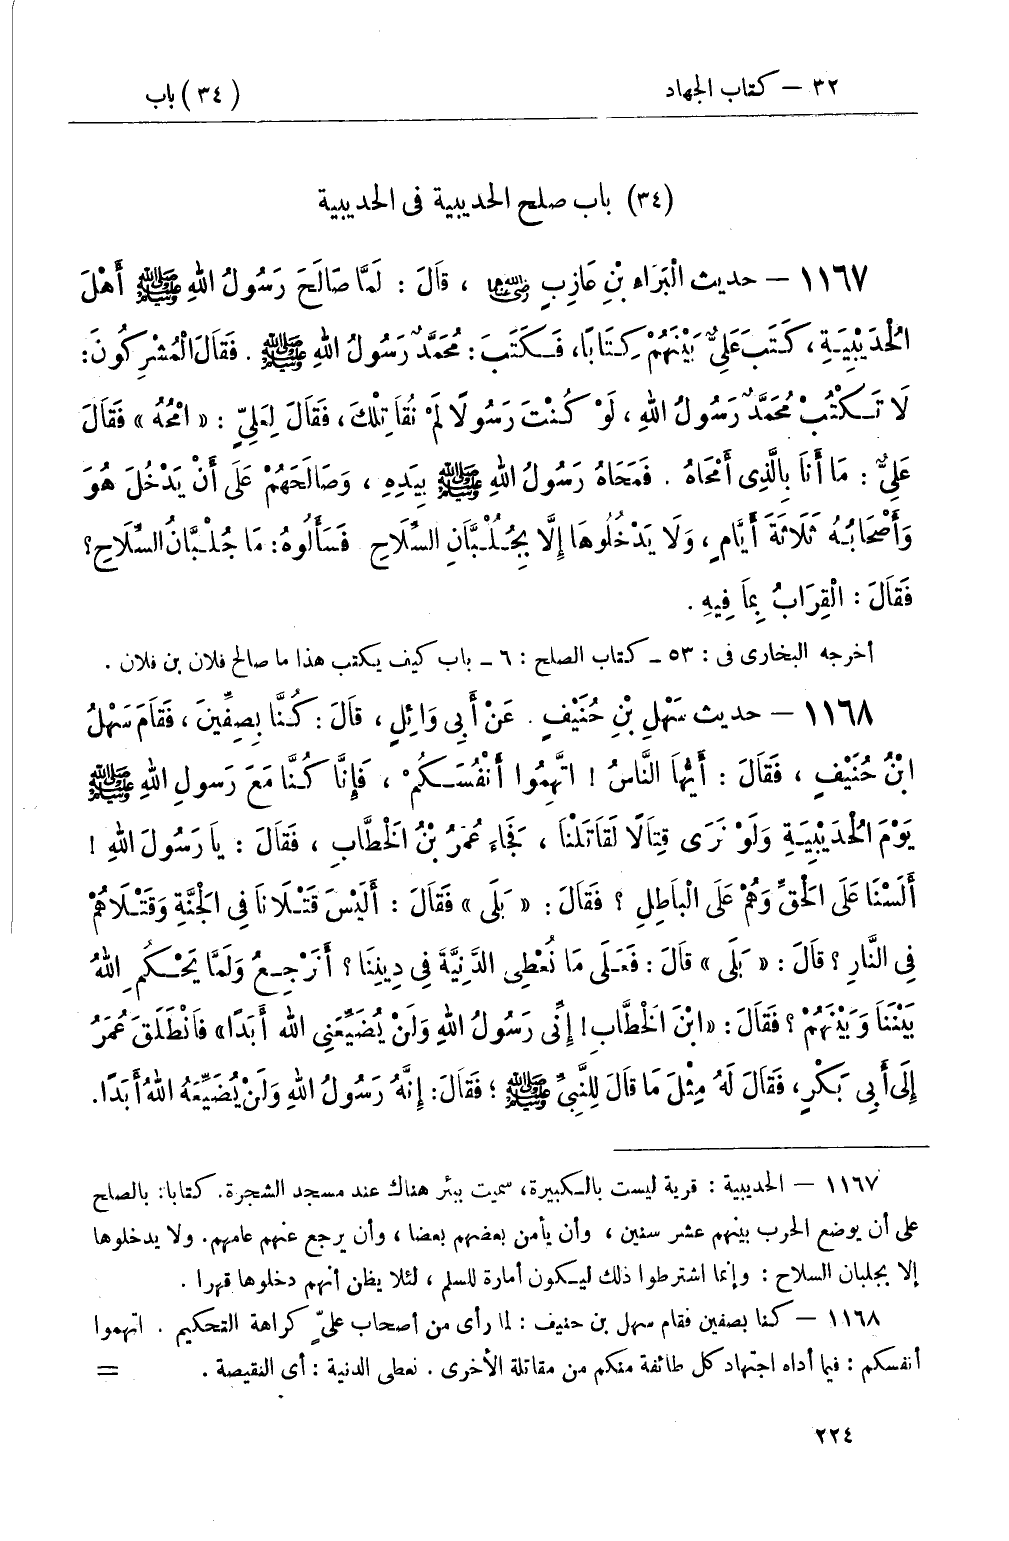 ٣٢ – كتاب الجهاد
(٣٤) باب
(٣٤) باب صلح الحديبية فى الحديبية
١١٦٧ – حديث الْبَرَاءِ بْنِ عَازِبٍ رضي الله عنهما ، قَالَ : لَمَّا صَالَحَ رَسُولُ اللهِ ﷺ أَهْلَ
الْحُدَيْبِيَةِ ، كَتَبَ عَلِيٌّ بَيْنَهُمْ كِتَابًا، فَكَتَبَ : مُحَمَّدٌ رَسُولُ اللهِ ﷺ . فَقَالَ الْمُشْرِكُونَ :
لَا تَكْتُبْ مُحَمَّدٌ رَسُولُ اللهِ ، لَوْ كُنْتَ رَسُولًا لَمْ نُقَاتِلْكَ ، فَقَالَ لِعَلِيٍّ : « امْحُهُ » فَقَالَ
عَلِيٌّ : مَا أَنَا بِالَّذِى أَمْحَاهُ . فَمَحَاهُ رَسُولُ اللهِ ﷺ بِيَدِهِ ، وَصَالَحَهُمْ عَلَى أَنْ يَدْخُلَ هُوَ
وَأَصْحَابُهُ ثَلَاثَةَ أَيَّامٍ ، وَلَا يَدْخُلُوهَا إِلَّا بِجُلُبَّانِ السِّلَاحِ فَسَأَلُوهُ : مَا جُلُبَّانُ السِّلَاحِ ؟
فَقَالَ : الْقِرَابُ بِمَا فِيهِ .
أخرجه البخارى فى : ٥٣ ــ كتاب الصلح : ٦ ــ باب كيف يكتب هذا ما صالح فلان بن فلان .
١١٦٨ – حديث سَهْلِ بْنِ حُنَيْفٍ . عَنْ أَبِى وَائِلٍ ، قَالَ : كُنَّا بِصِفِّينَ ، فَقَامَ سَهْلُ
ابْنُ حُنَيْفٍ ، فَقَالَ : أَيُّهَا النَّاسُ ! اتَّهِمُوا أَنْفُسَكُمْ ، فَإِنَّا كُنَّا مَعَ رَسولِ اللهِ ﷺ
يَوْمَ الْحُدَيْبِيَةِ وَلَوْ نَرَى قِتَالًا لَقَاتَلْنَا ، فَجَاءَ عُمَرُ بْنُ الْخَطَّابِ ، فَقَالَ : يَا رَسُولَ اللهِ !
أَلَسْنَا عَلَى الْحَقِّ وَهُمْ عَلَى الْبَاطِلِ ؟ فَقَالَ : « بَلَى » فَقَالَ : أَلَيْسَ قَتْلَانَا فِى الْجَنَّةِ وَقَتْلَاهُمْ
فِى النَّارِ ؟ قَالَ : « بَلَى » قَالَ : فَعَلَى مَا نُعْطِى الدَّنِيَّةَ فِى دِينِنَا ؟ أَنَرْجِعُ وَلَمَّا يَحْكُمِ اللهُ
بَيْنَنَا وَبَيْنَهُمْ ؟ فَقَالَ : «ابْنَ الْخَطَّابِ ! إِنِّى رَسُولُ اللهِ وَلَنْ يُضَيِّعَنِى اللهُ أَبَدًا» فَانْطَلَقَ عُمَرُ
إِلَى أَبِى بَكْرٍ ، فَقَالَ لَهُ مِثْلَ مَا قَالَ لِلنَّبِيِّ ﷺ ؛ فَقَالَ : إِنَّهُ رَسُولُ اللهِ وَلَنْ يُضَيِّعَهُ اللهُ أَبَدًا.
١١٦٧ – الحديبية : قرية ليست بالكبيرة، سميت ببئر هناك عند مسجد الشجرة. كتابا: بالصلح
على أن يوضع الحرب بينهم عشر سنين ، وأن يأمن بعضهم بعضا ، وأن يرجع عنهم عامهم. ولا يدخلوها
إلا بجلبان السلاح : وإنما اشترطوا ذلك ليكون أمارة للسلم ، لئلا يظن أنهم دخلوها قهرا .
١١٦٨ – كنا بصفين فقام سهل بن حنيف : لما رأى من أصحاب علىّ كراهة التحكيم . اتهموا
أنفسكم : فيما أداه اجتهاد كل طائفة منكم من مقاتلة الأخرى . نعطى الدنية : أى النقيصة . =
٢٢٤